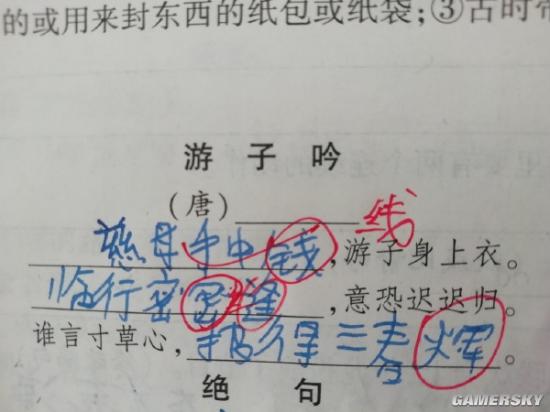 的或用来封东西的纸包或纸袋;③古时
游子吟
(唐)________ 线
慈母手中钱,游子身上衣。
临行密密缝,意恐迟迟归。
谁言寸草心,报得三春煇。
绝句
GAMERSKY